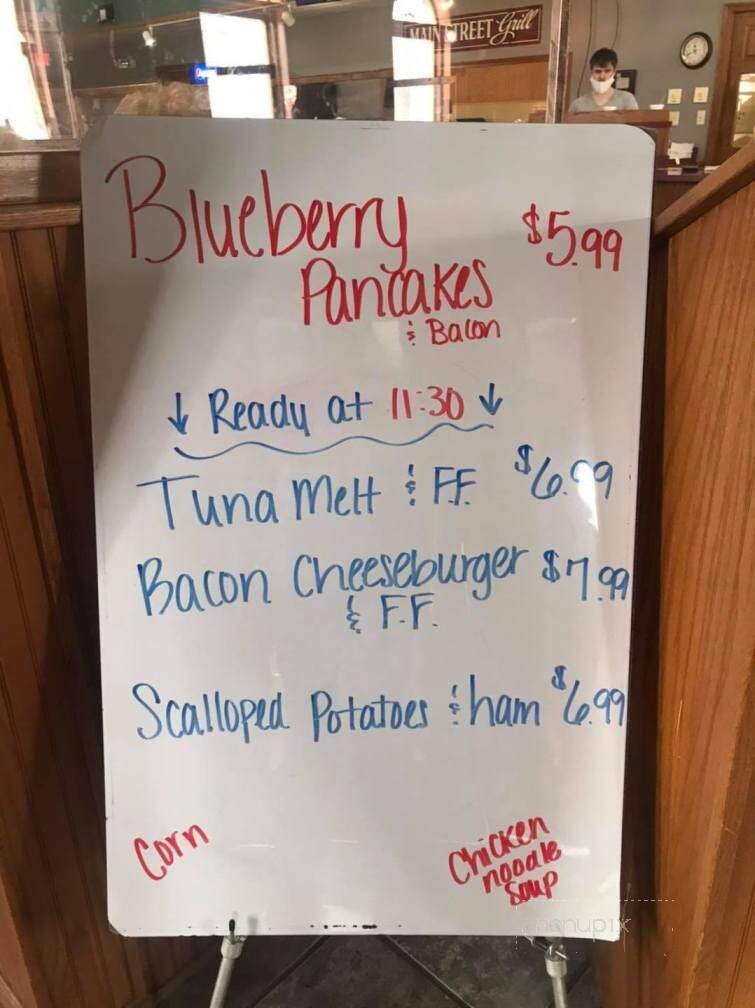 MAIN STREET Grill
Blueberry $5.99
Pancakes
& Bacon
↓ Ready at 11:30 ↓
Tuna Melt & F.F. $6.99
Bacon Cheeseburger $7.99
& F.F.
Scalloped Potatoes & ham $6.99
Corn
Chicken
noodle
Soup
menupix